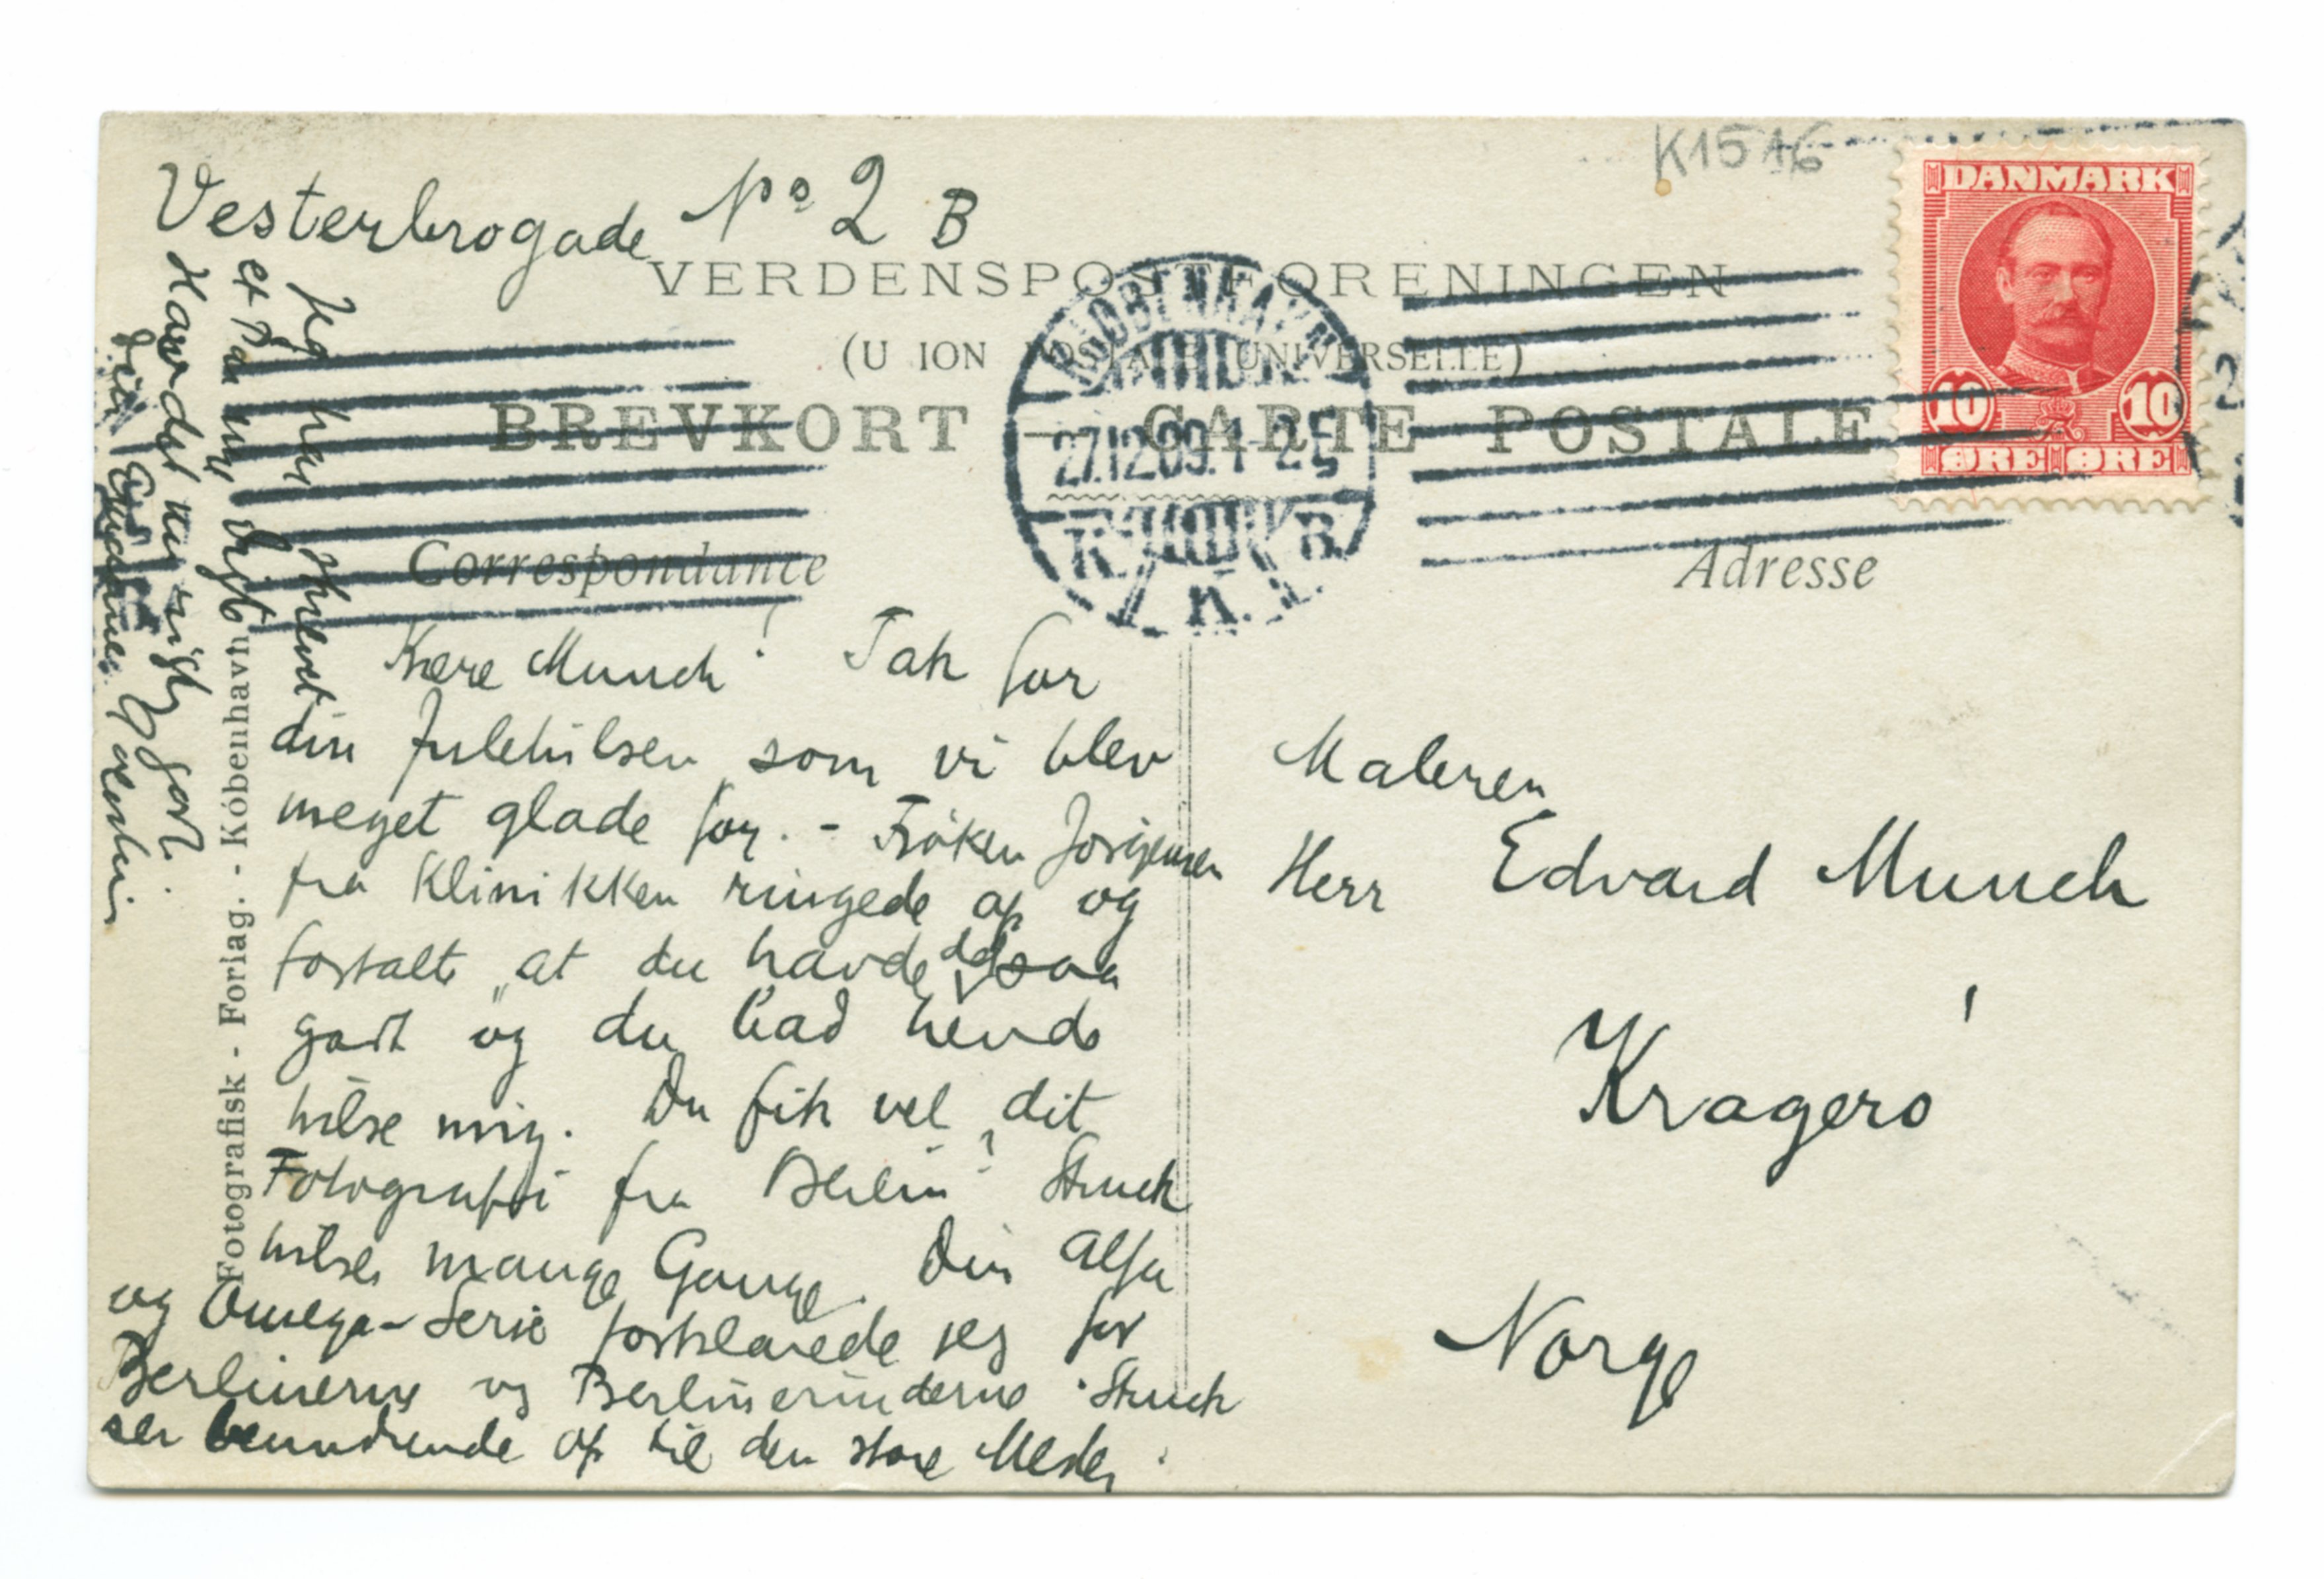 K1516
Vesterbrogade No 2 B
DANMARK
10 10
ØRE ØRE
VERDENSPOSTFORENINGEN
(U ION POSTALE UNIVERSELLE)
BREVKORT – CARTE POSTALE
KJØBENHAVN
27.12.09. 1-2 E
K.
Correspondance
Adresse
Kære Munch! Tak for
din Julehilsen, som vi blev
meget glade for. - Frøken Jørgensen
fra Klinikken ringede op og
fortalte, at du havde det saa
godt og du bad hende
hilse mig. Du fik vel dit
Fotografi fra Berlin? Struck
hilser mange Gange. Din Alfa
og Omega-Serie forklarede jeg for
Berlinerne og Berlinerinderne. Struck
ser beundrende op til den store Mester.
Jeg har skrevet
et Par nye Digte
Har det nu rigtig godt.
din
Maleren
Herr Edvard Munch
Kragerø
Norge
Fotografisk - Forlag. - Kóbenhavn